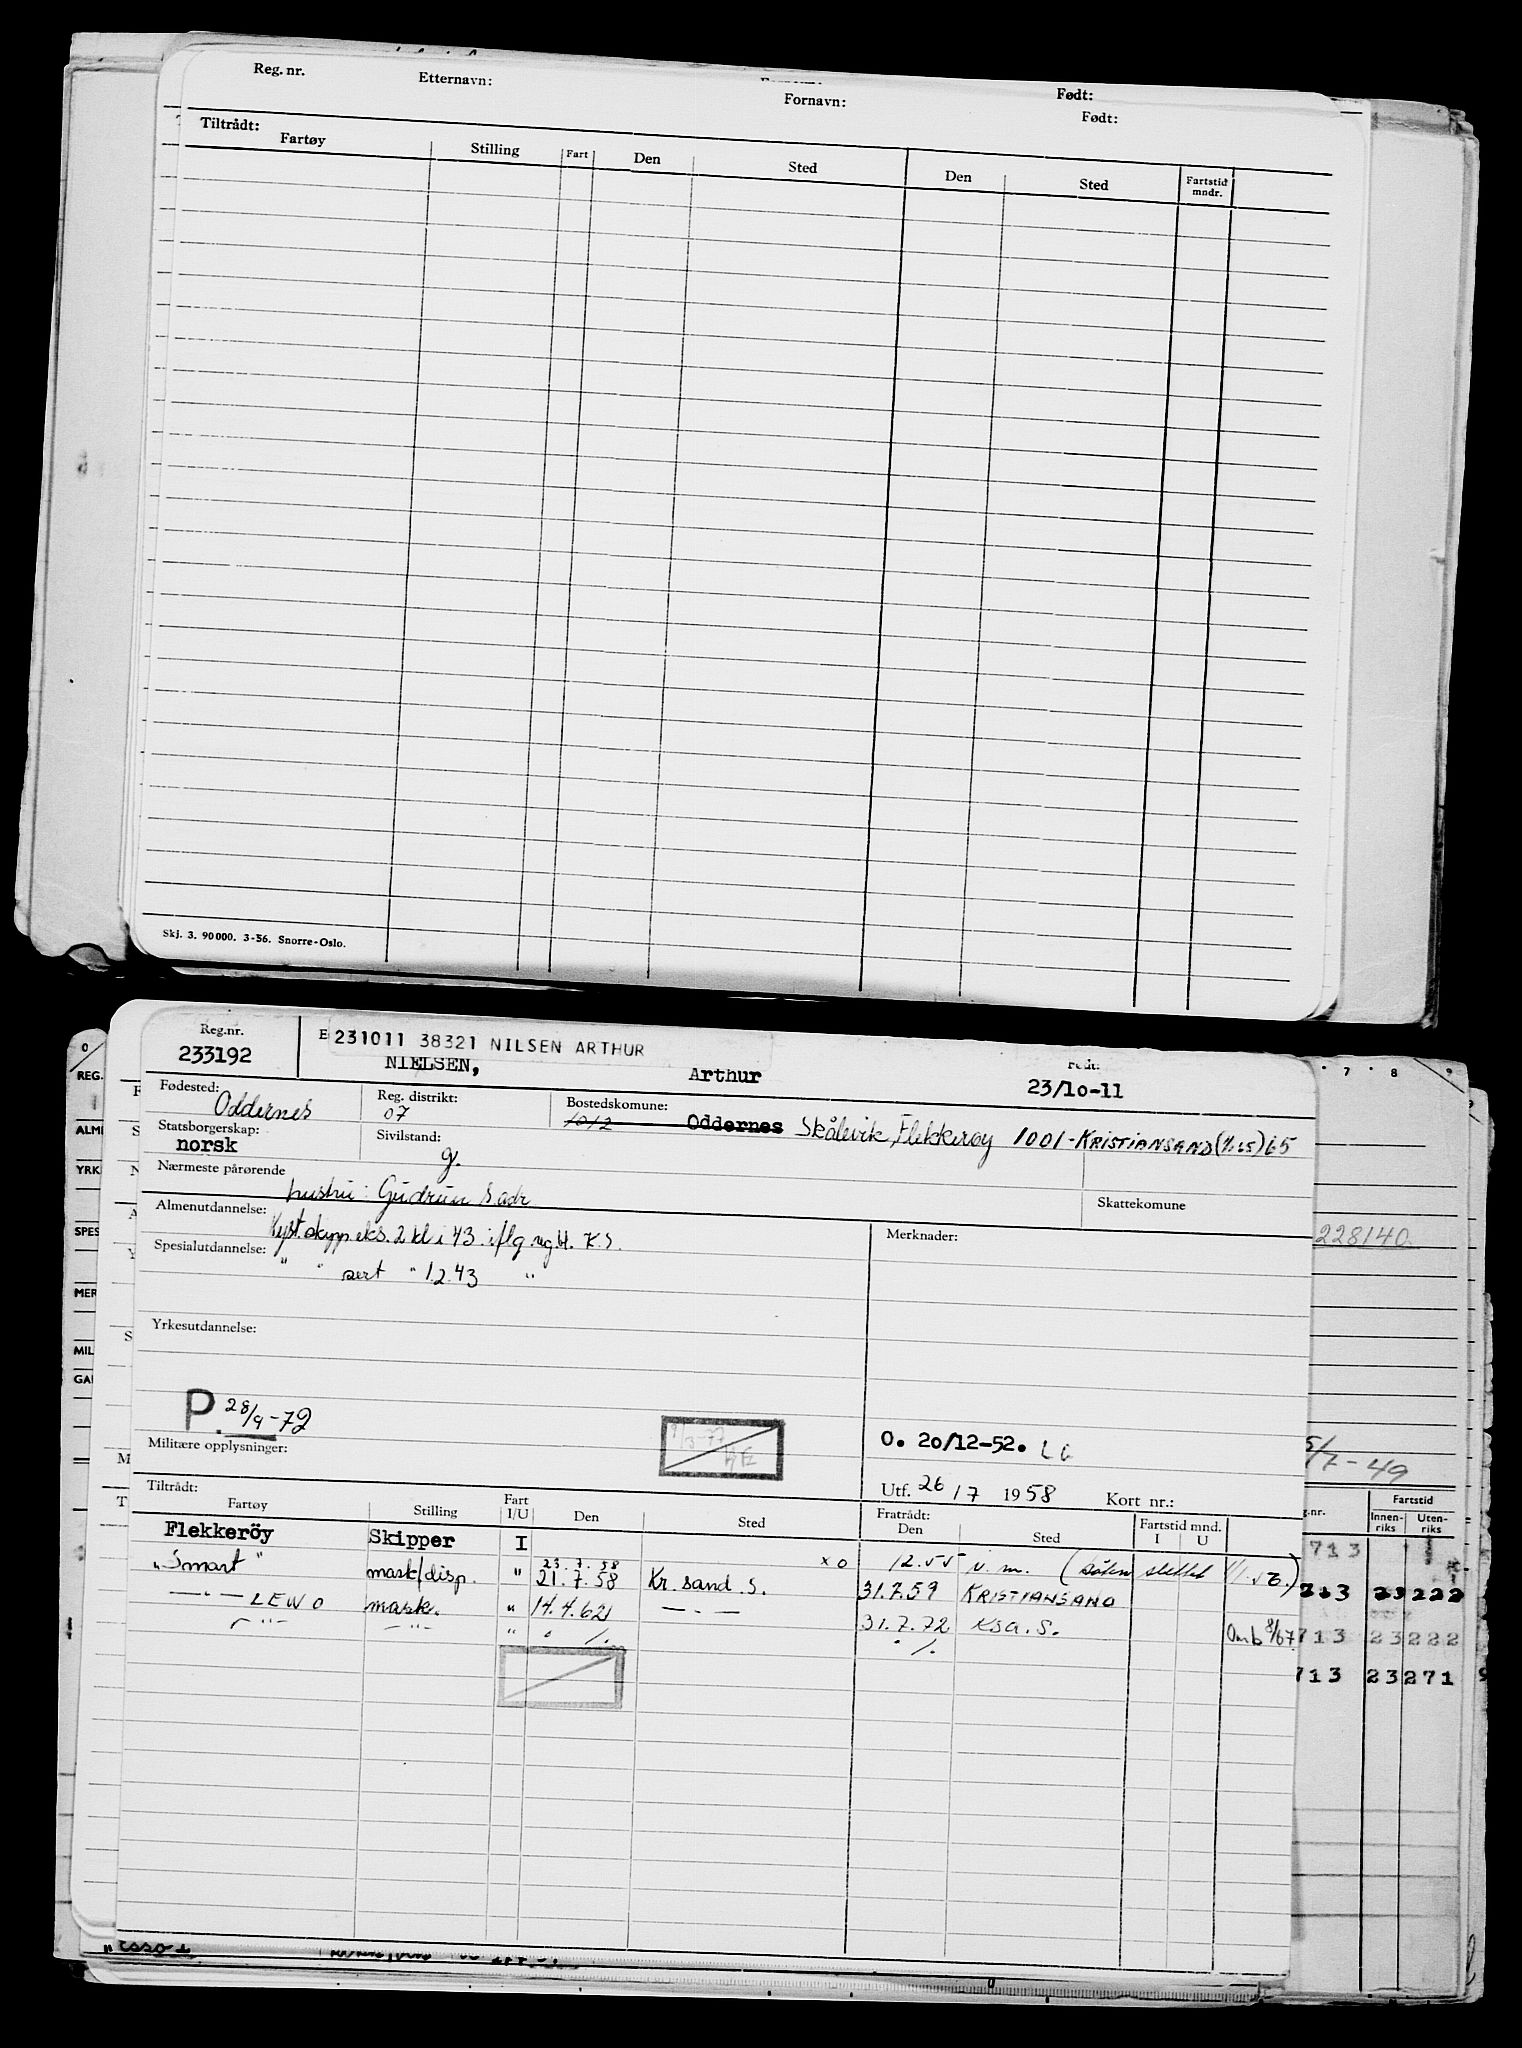 Reg. nr.
Etternavn:
Fornavn:
Født:
Født:
Tiltrådt:
Fartøy
Stilling
Fart
Den
Sted
Den
Sted
Fartstid mndr.
Skj. 3. 90000. 3-56. Snorre-Oslo.
Reg.nr.
233192
E
231011 38321 NILSEN ARTHUR
NIELSEN,
Arthur
23/10-11
Fødested:
Oddernes
Reg. distrikt:
07
Bostedskomune:
1012
Oddernes Skålevik, Flekkerøy 1001-KRISTIANSAND (1/1 65) 65
Statsborgerskap:
norsk
Sivilstand:
g.
Nærmeste pårørende
hustru: Gudrun s adr
Skattekomune
Almenutdannelse:
Kyst.skipp.eks. 2 kl i 43 iflg reg.bl. K.S.
Merknader:
Spesialutdannelse:
" " sert " 12.43 "
Yrkesutdannelse:
P. 28/9-72
Militære opplysninger:
O. 20/12-52. LG
Utf. 26/7 1958
Kort nr.:
Tiltrådt:
Fartøy
Stilling
Fart I/U
Den
Sted
Fratrådt:
Den
Sted
Fartstid mnd.
I U
Flekkeröy Skipper I
"Smart" mask/disp. " 23.7.58
21.7.58 Kr.sand.S. xo 12.55 u.m. (båten slettet
31.7.59 KRISTIANSAND
—"— LEWO mask. " 14.4.62 — " —
31.7.72 Ksa.S.
—"— —"— " " /. " /. Omb 8/67
REG.
ALM
YRK
SPES
MER
MIL
7 8 9
228140
5/7-49
Fartstid
Innenriks
Utenriks
713
713 23 222
713 23 222
713 23 271